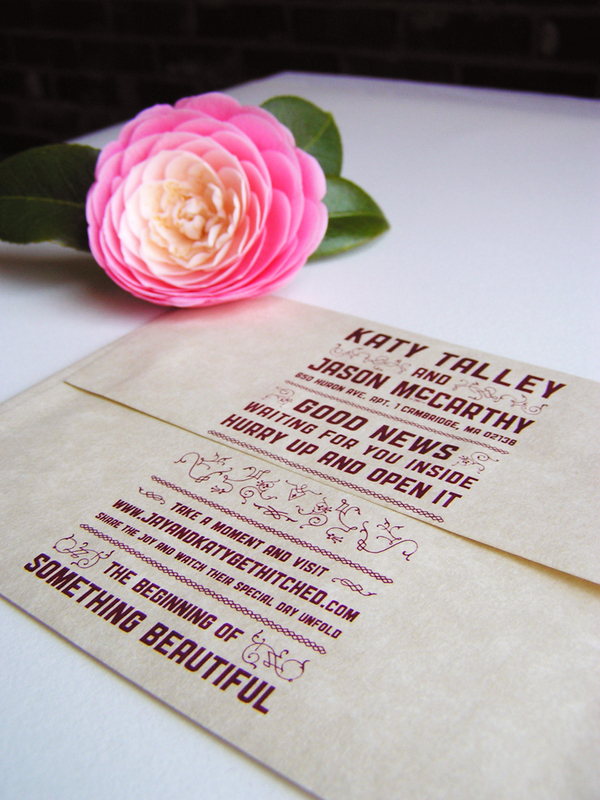 KATY TALLEY
AND
JASON McCARTHY
850 HURON AVE. APT. 1 CAMBRIDGE, MA 02138
GOOD NEWS
WAITING FOR YOU INSIDE
HURRY UP AND OPEN IT
TAKE A MOMENT AND VISIT
WWW.JAYANDKATYGETHITCHED.COM
SHARE THE JOY AND WATCH THEIR SPECIAL DAY UNFOLD
THE BEGINNING OF
SOMETHING BEAUTIFUL